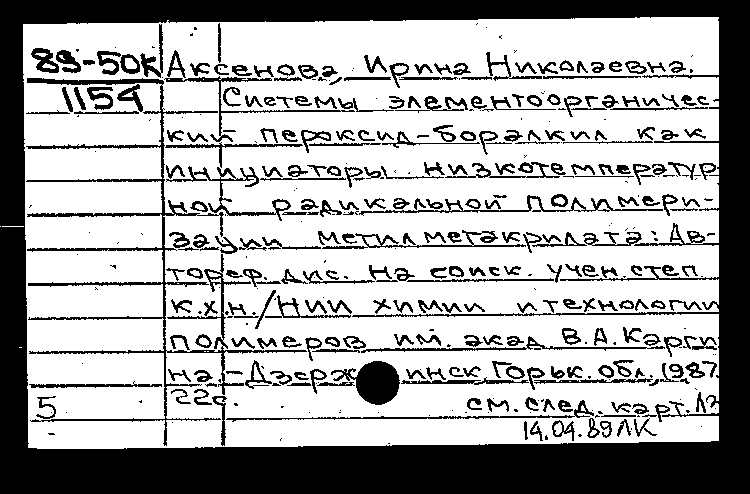 89-50К Аксенова, Ирина Николаевна.
1154 Системы элементоорганичес-
кий пероксид-боралкил как
инициаторы низкотемператур
ной радикальной полимери-
зации метилметакрилата: Ав-
тореф. дис. на соиск. учен. степ
к.х.н./НИИ химии и технологии
полимеров им. акад В.А. Карги
на.-Дзержинск, Горьк. обл., 1987.
5 22с. см. след. карт.
14.04.89 ЛК